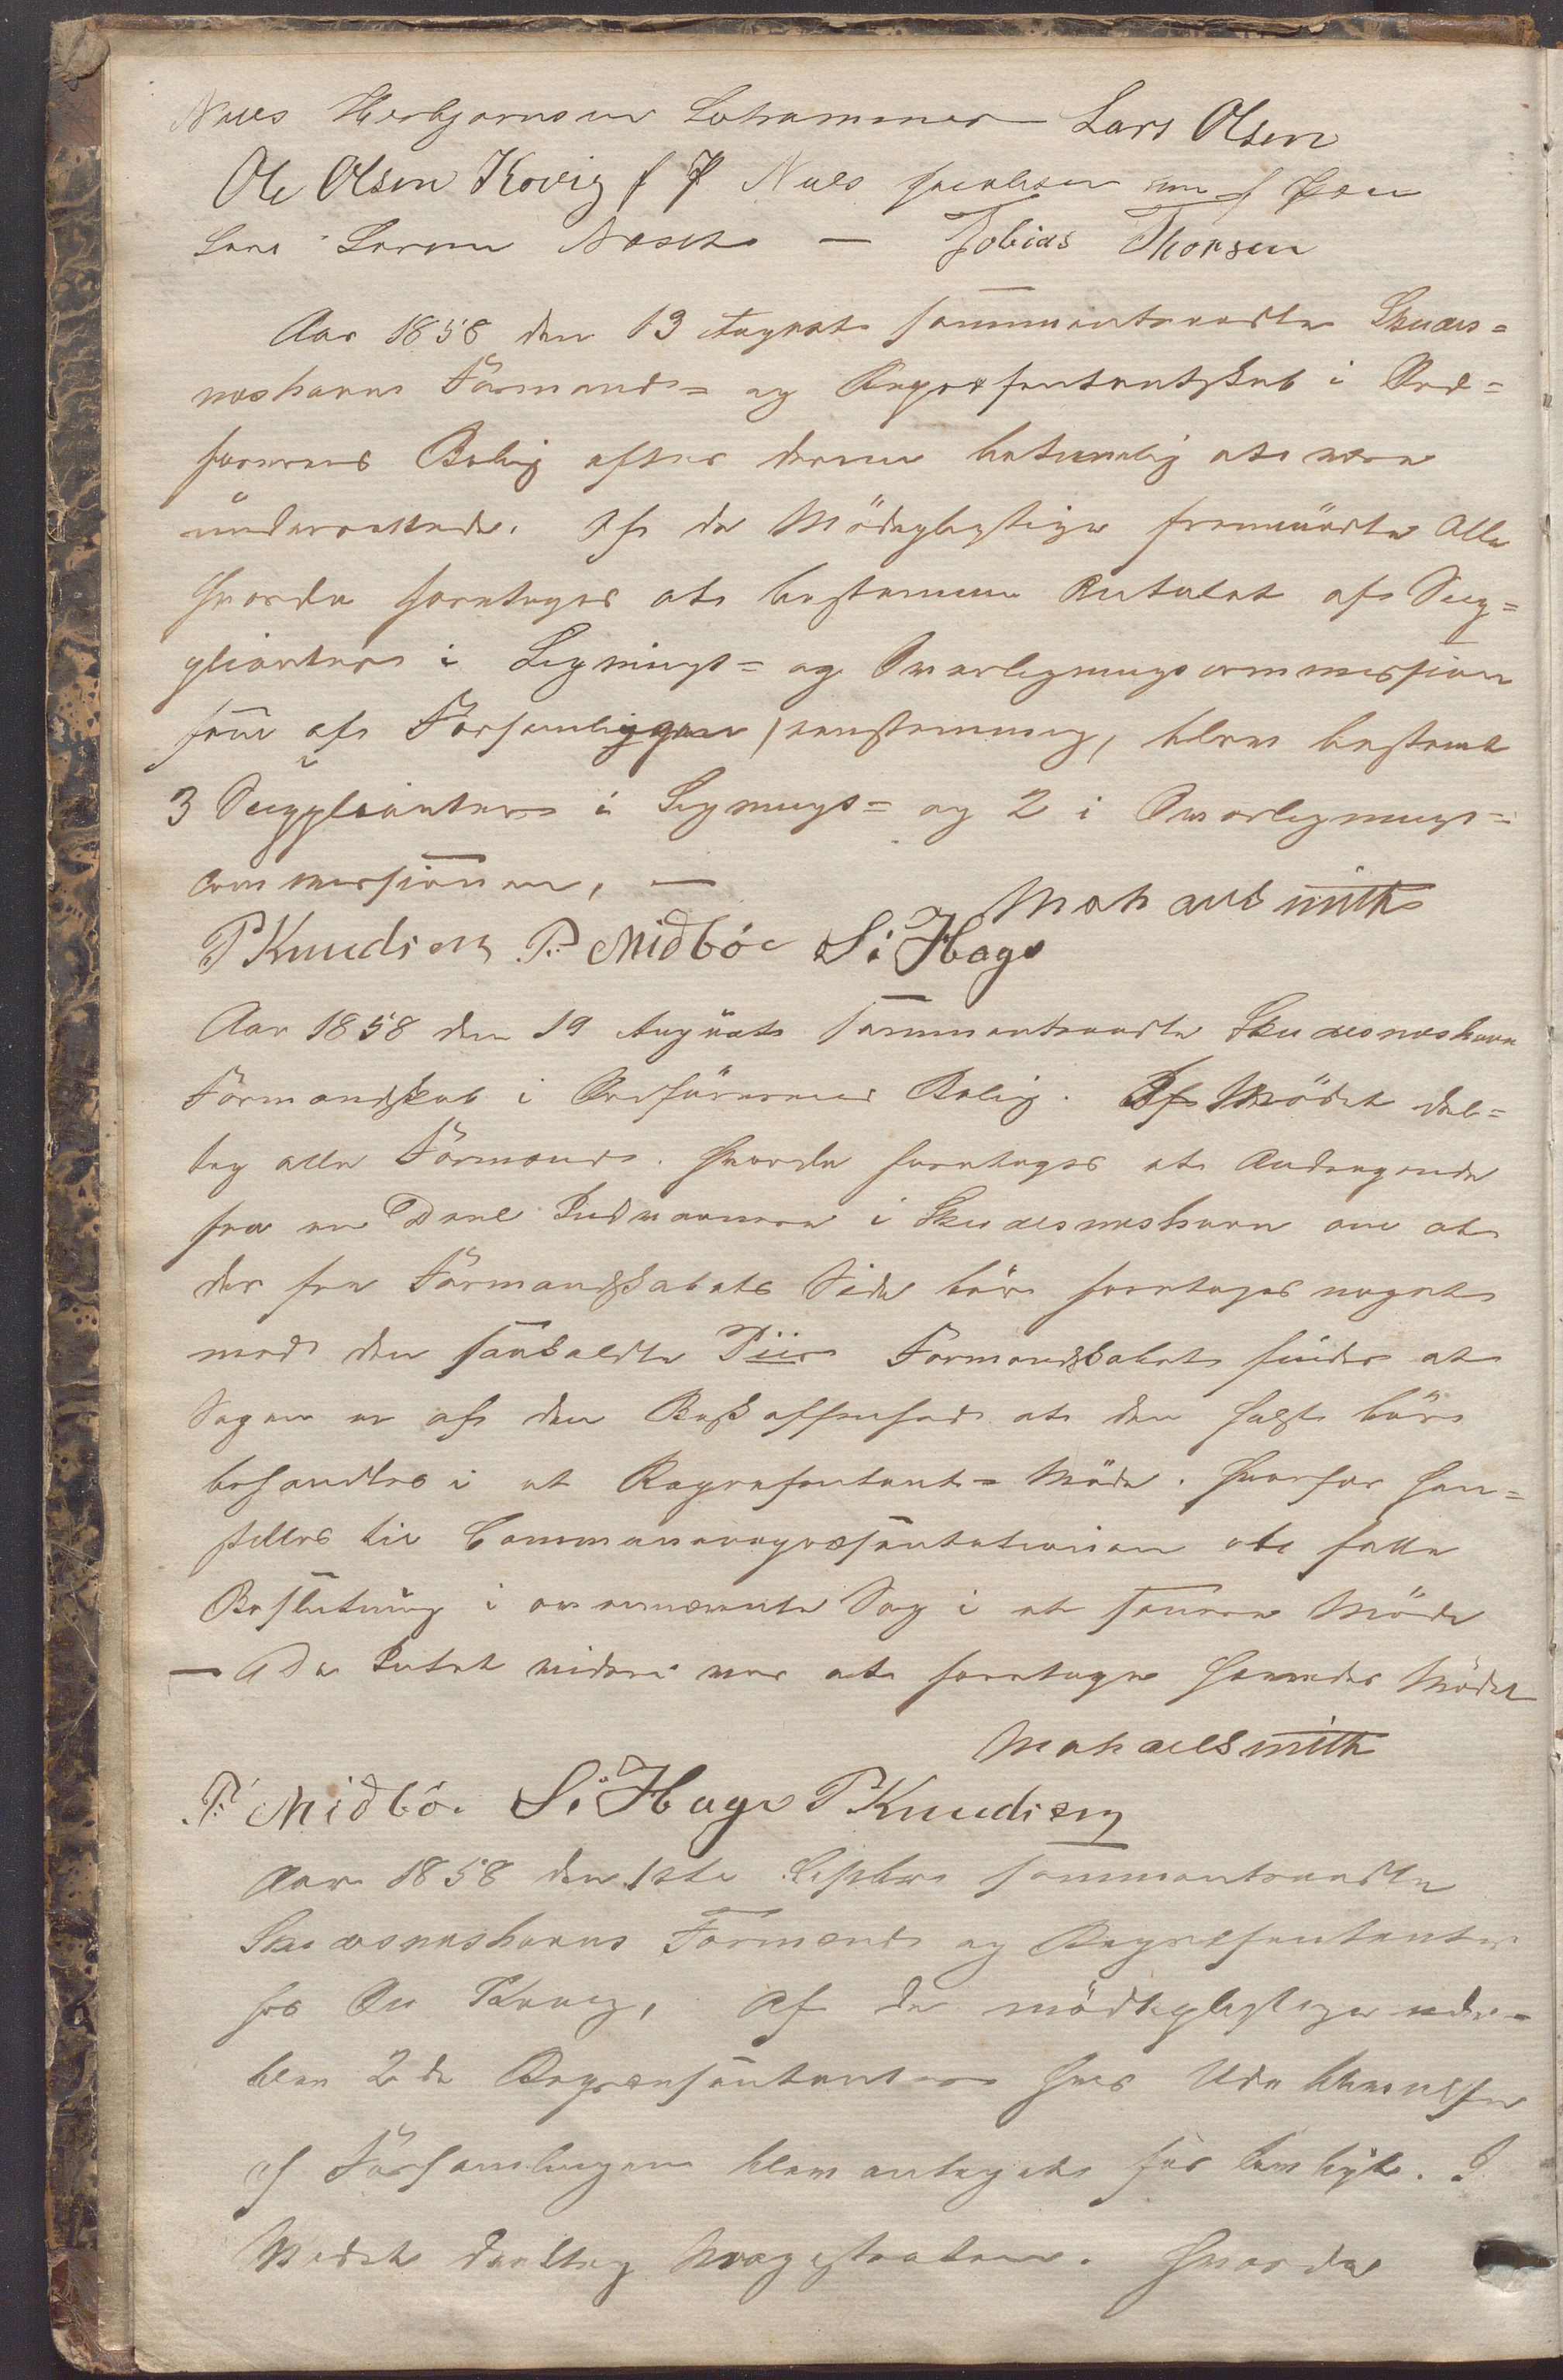 Niels Herbjørnsen Lahammer – Lars Olsen
Ole Olsen Kovig f P Niels Jacobsen m f Pen
Lars Larsen Næsets – Tobias Thorsen
Aar 1858 den 13 August sammentraadte Skudes=
næshavns Formænd= og Repræsentantskab i Ord=
førerens Bolig efter derom betimelig at være
underrettede. Af de Mødepligtige fremmødte Alle
Hvorda foretoges at bestemme Antalet af Sup=
plianter i Ligning[s]= og Overligningscommission
som af Forsamlingen, eenstemmig, blev bestemt
3 Suppleanter i Lignings= og 2 i Overlignings=
commissionen, –
Mohaus mith
P Knudsen P. Midbóe S: Hage
Aar 1858 den 19 August sammentraadte Skudesneshavn
Formandskab i Ordførerens Bolig. Af Mødet del=
tog alle Formænd. Hvorda foretoges et Andragende
fra en Deel Indvaanere i Skudesneshavn om at
der fra Formandskabets Side bør foretages noget
mod den saakaldte Piir Formandskabet finder at
Sagen er af den Beskaffenhed at den helst bør
behandles i et Repræsentant= Møde. Hvorfor hen=
stilles til Communerepræsentationen at fatte
Beslutning i ovennævnte Sag i et senere Møde
– Da Intet videre var at foretage hævedes Mødet
Mohaus mith
P. Midbó. S: Hage P Knudsen
Aar 1858 den 1ste Septbr sammentraadte
Skudesneshavns Formænd og Repræsentanter
hos Ole Kovig, af de mødepligtige ude=
blev 2 de Repræsentanter hvis Udeblivelse
af Forsamlingen blev antaget for lovligt. I
Mødet deeltog Magistraten. Hvorda